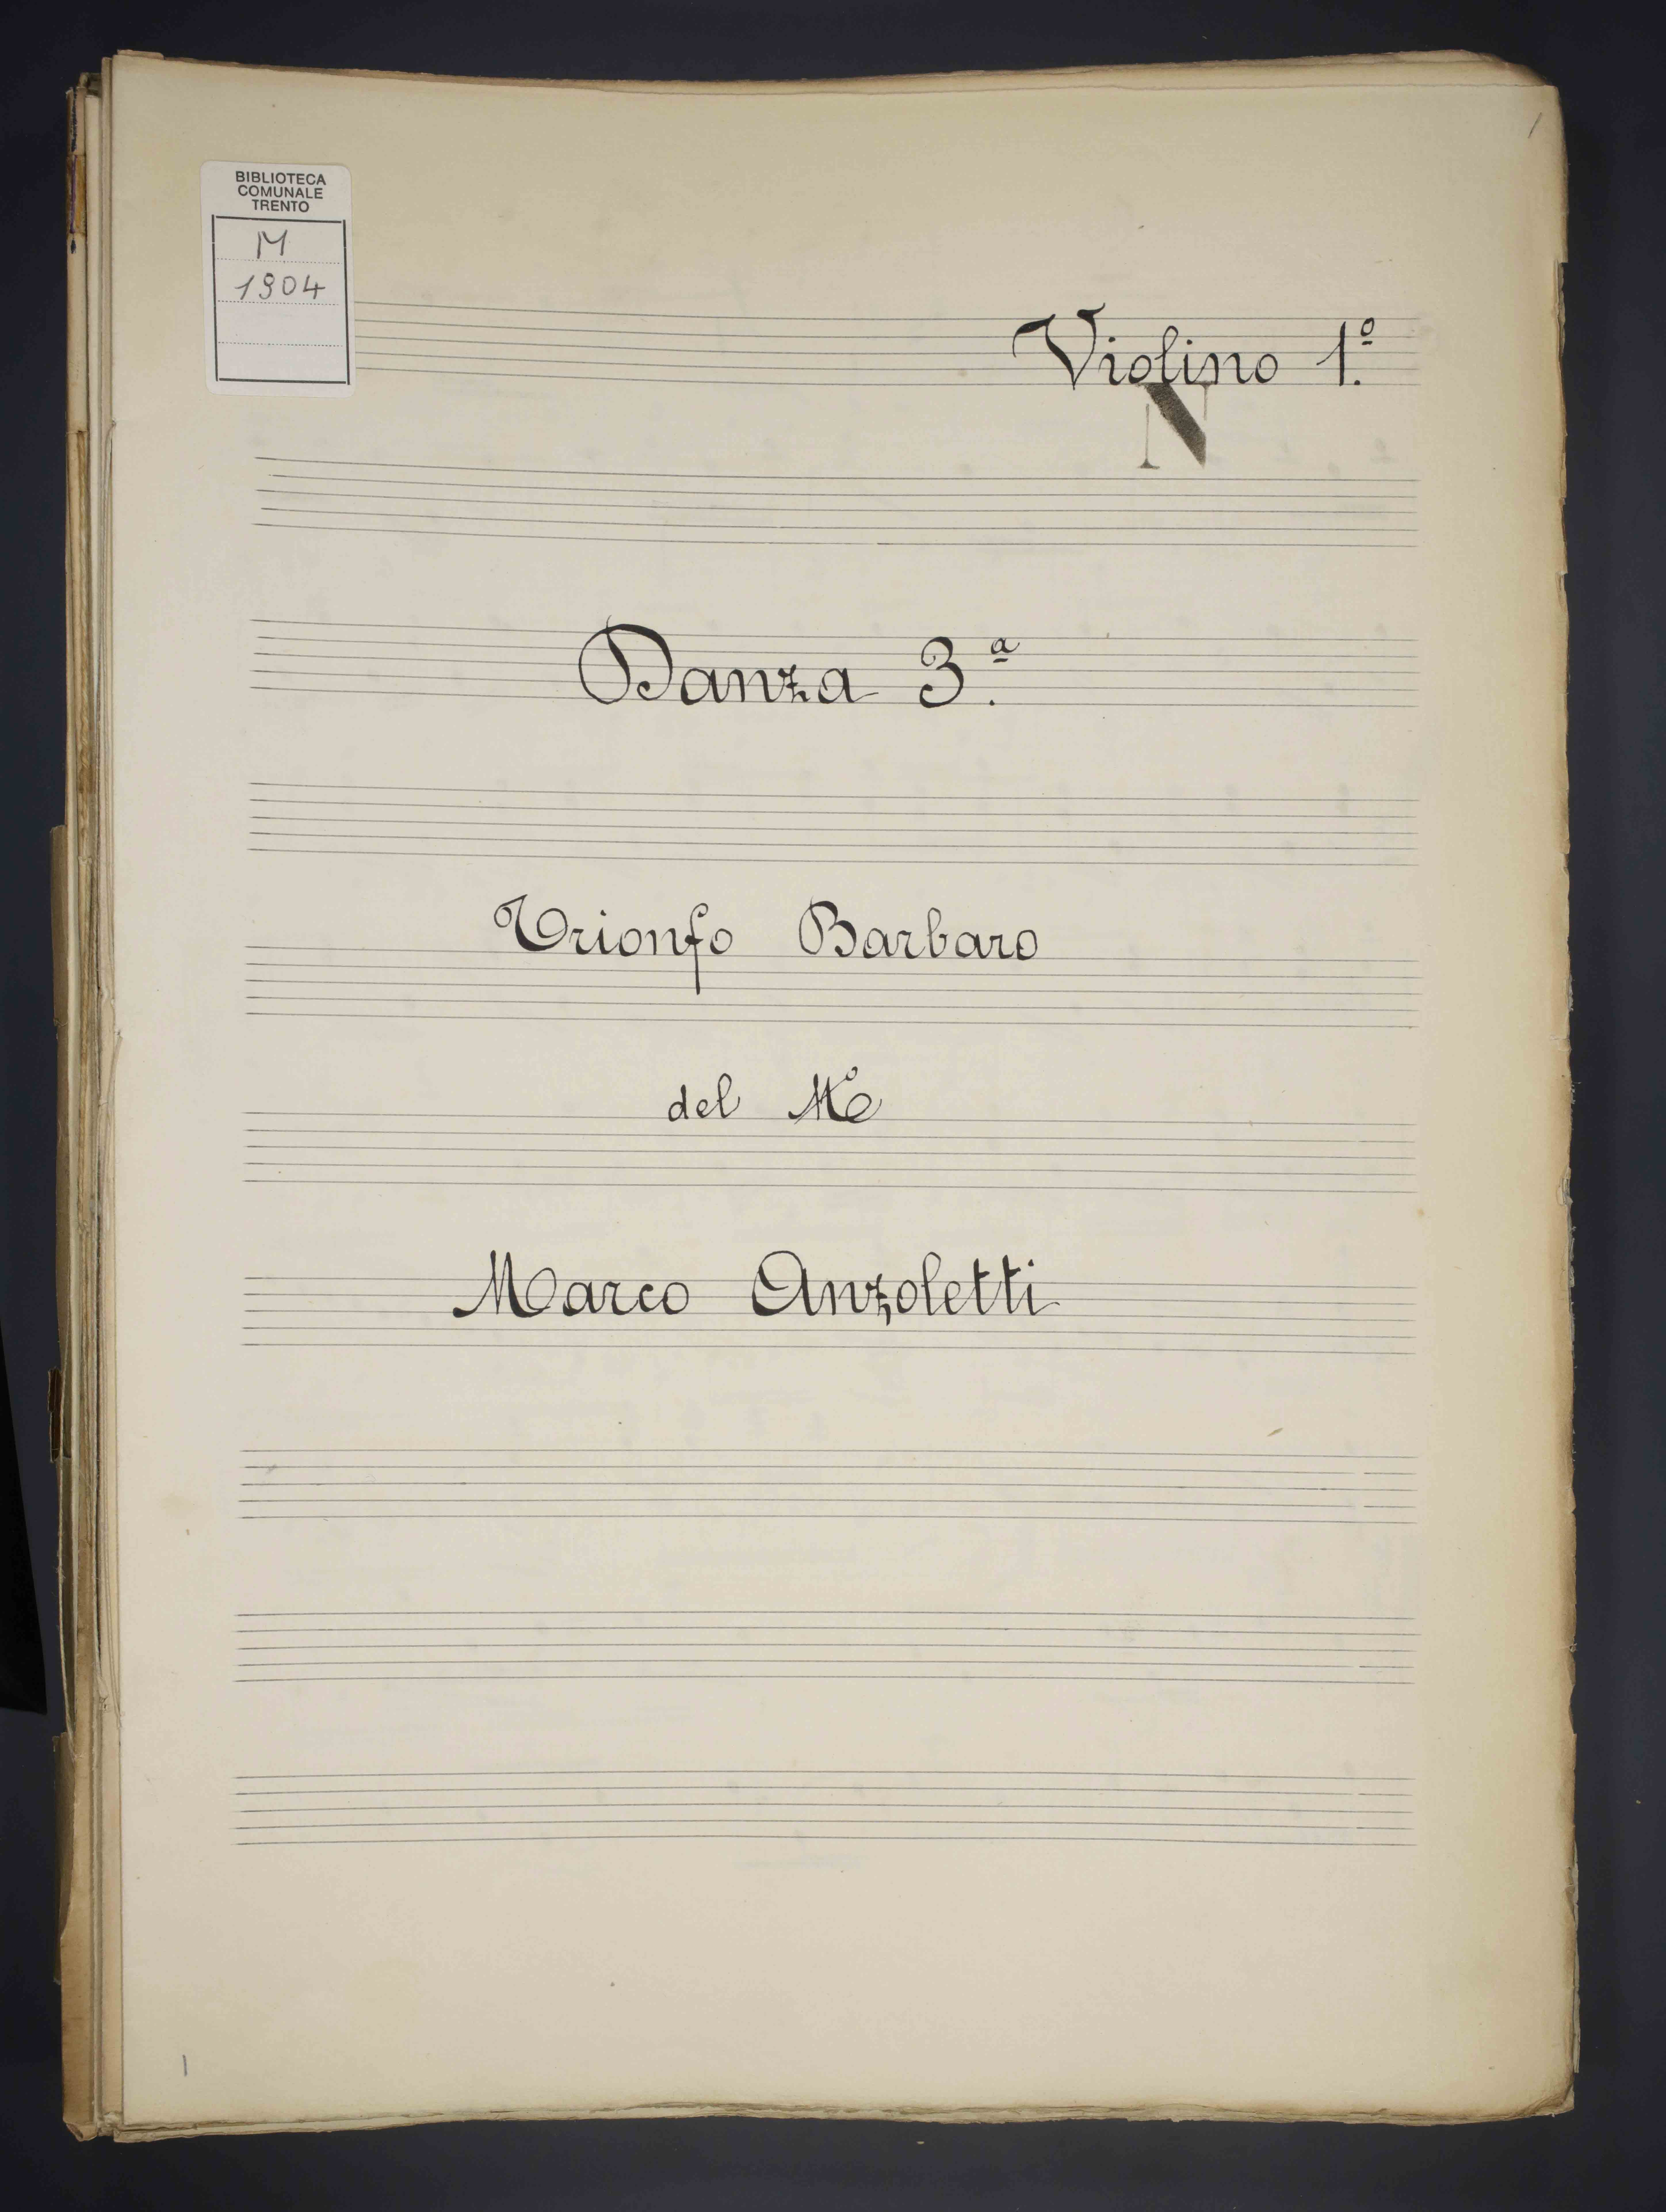 1
BIBLIOTECA
COMUNALE
TRENTO
M
1904
Violino 1.º
N
Danza 3.ª
Trionfo Barbaro
del Mº
Marco Anzoletti
1